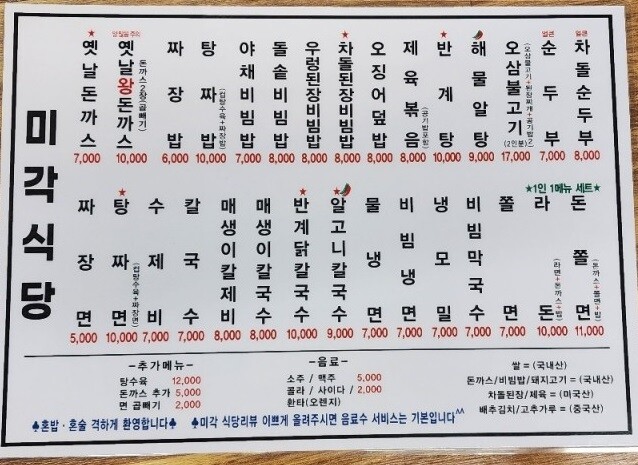 미각식당
★
옛날돈까스
7,000
양 많음 주의
옛날왕돈까스
(돈까스2장+곱빼기)
10,000
짜장밥
6,000
탕짜밥
(컵탕수육+짜장밥)
10,000
야채비빔밥
7,000
돌솥비빔밥
8,000
우렁된장비빔밥
8,000
★
차돌된장비빔밥
8,000
오징어덮밥
8,000
제육볶음
(공기밥포함)
8,000
★
반계탕
10,000
해물알탕
9,000
오삼불고기
(오삼불고기+된장찌개+공기밥2)
(2인분)
17,000
얼큰
순두부
7,000
얼큰
차돌순두부
8,000
짜장면
5,000
★
탕짜면
(컵탕수육+짜장면)
10,000
수제비
7,000
칼국수
7,000
매생이칼제비
8,000
매생이칼국수
8,000
★
반계닭칼국수
10,000
★
알고니칼국수
9,000
물냉면
7,000
비빔냉면
7,000
냉모밀
7,000
비빔막국수
7,000
쫄면
7,000
★1인 1메뉴 세트★
라돈
(라면+돈까스+밥)
10,000
돈쫄면
(돈까스+쫄면+밥)
11,000
-추가메뉴-
탕수육 12,000
돈까스 추가 5,000
면 곱빼기 2,000
-음료-
소주 / 맥주 5,000
콜라 / 사이다 / 2,000
환타(오렌지)
쌀 = (국내산)
돈까스/비빔밥/돼지고기 = (국내산)
차돌된장/제육 = (미국산)
배추김치/고추가루 = (중국산)
♣혼밥 · 혼술 격하게 환영합니다♣ ♣미각 식당리뷰 이쁘게 올려주시면 음료수 서비스는 기본입니다^^